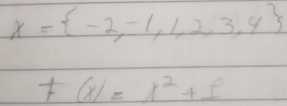 x = { -2, -1, 1, 2, 3, 4 }
F(x) = x² + 1